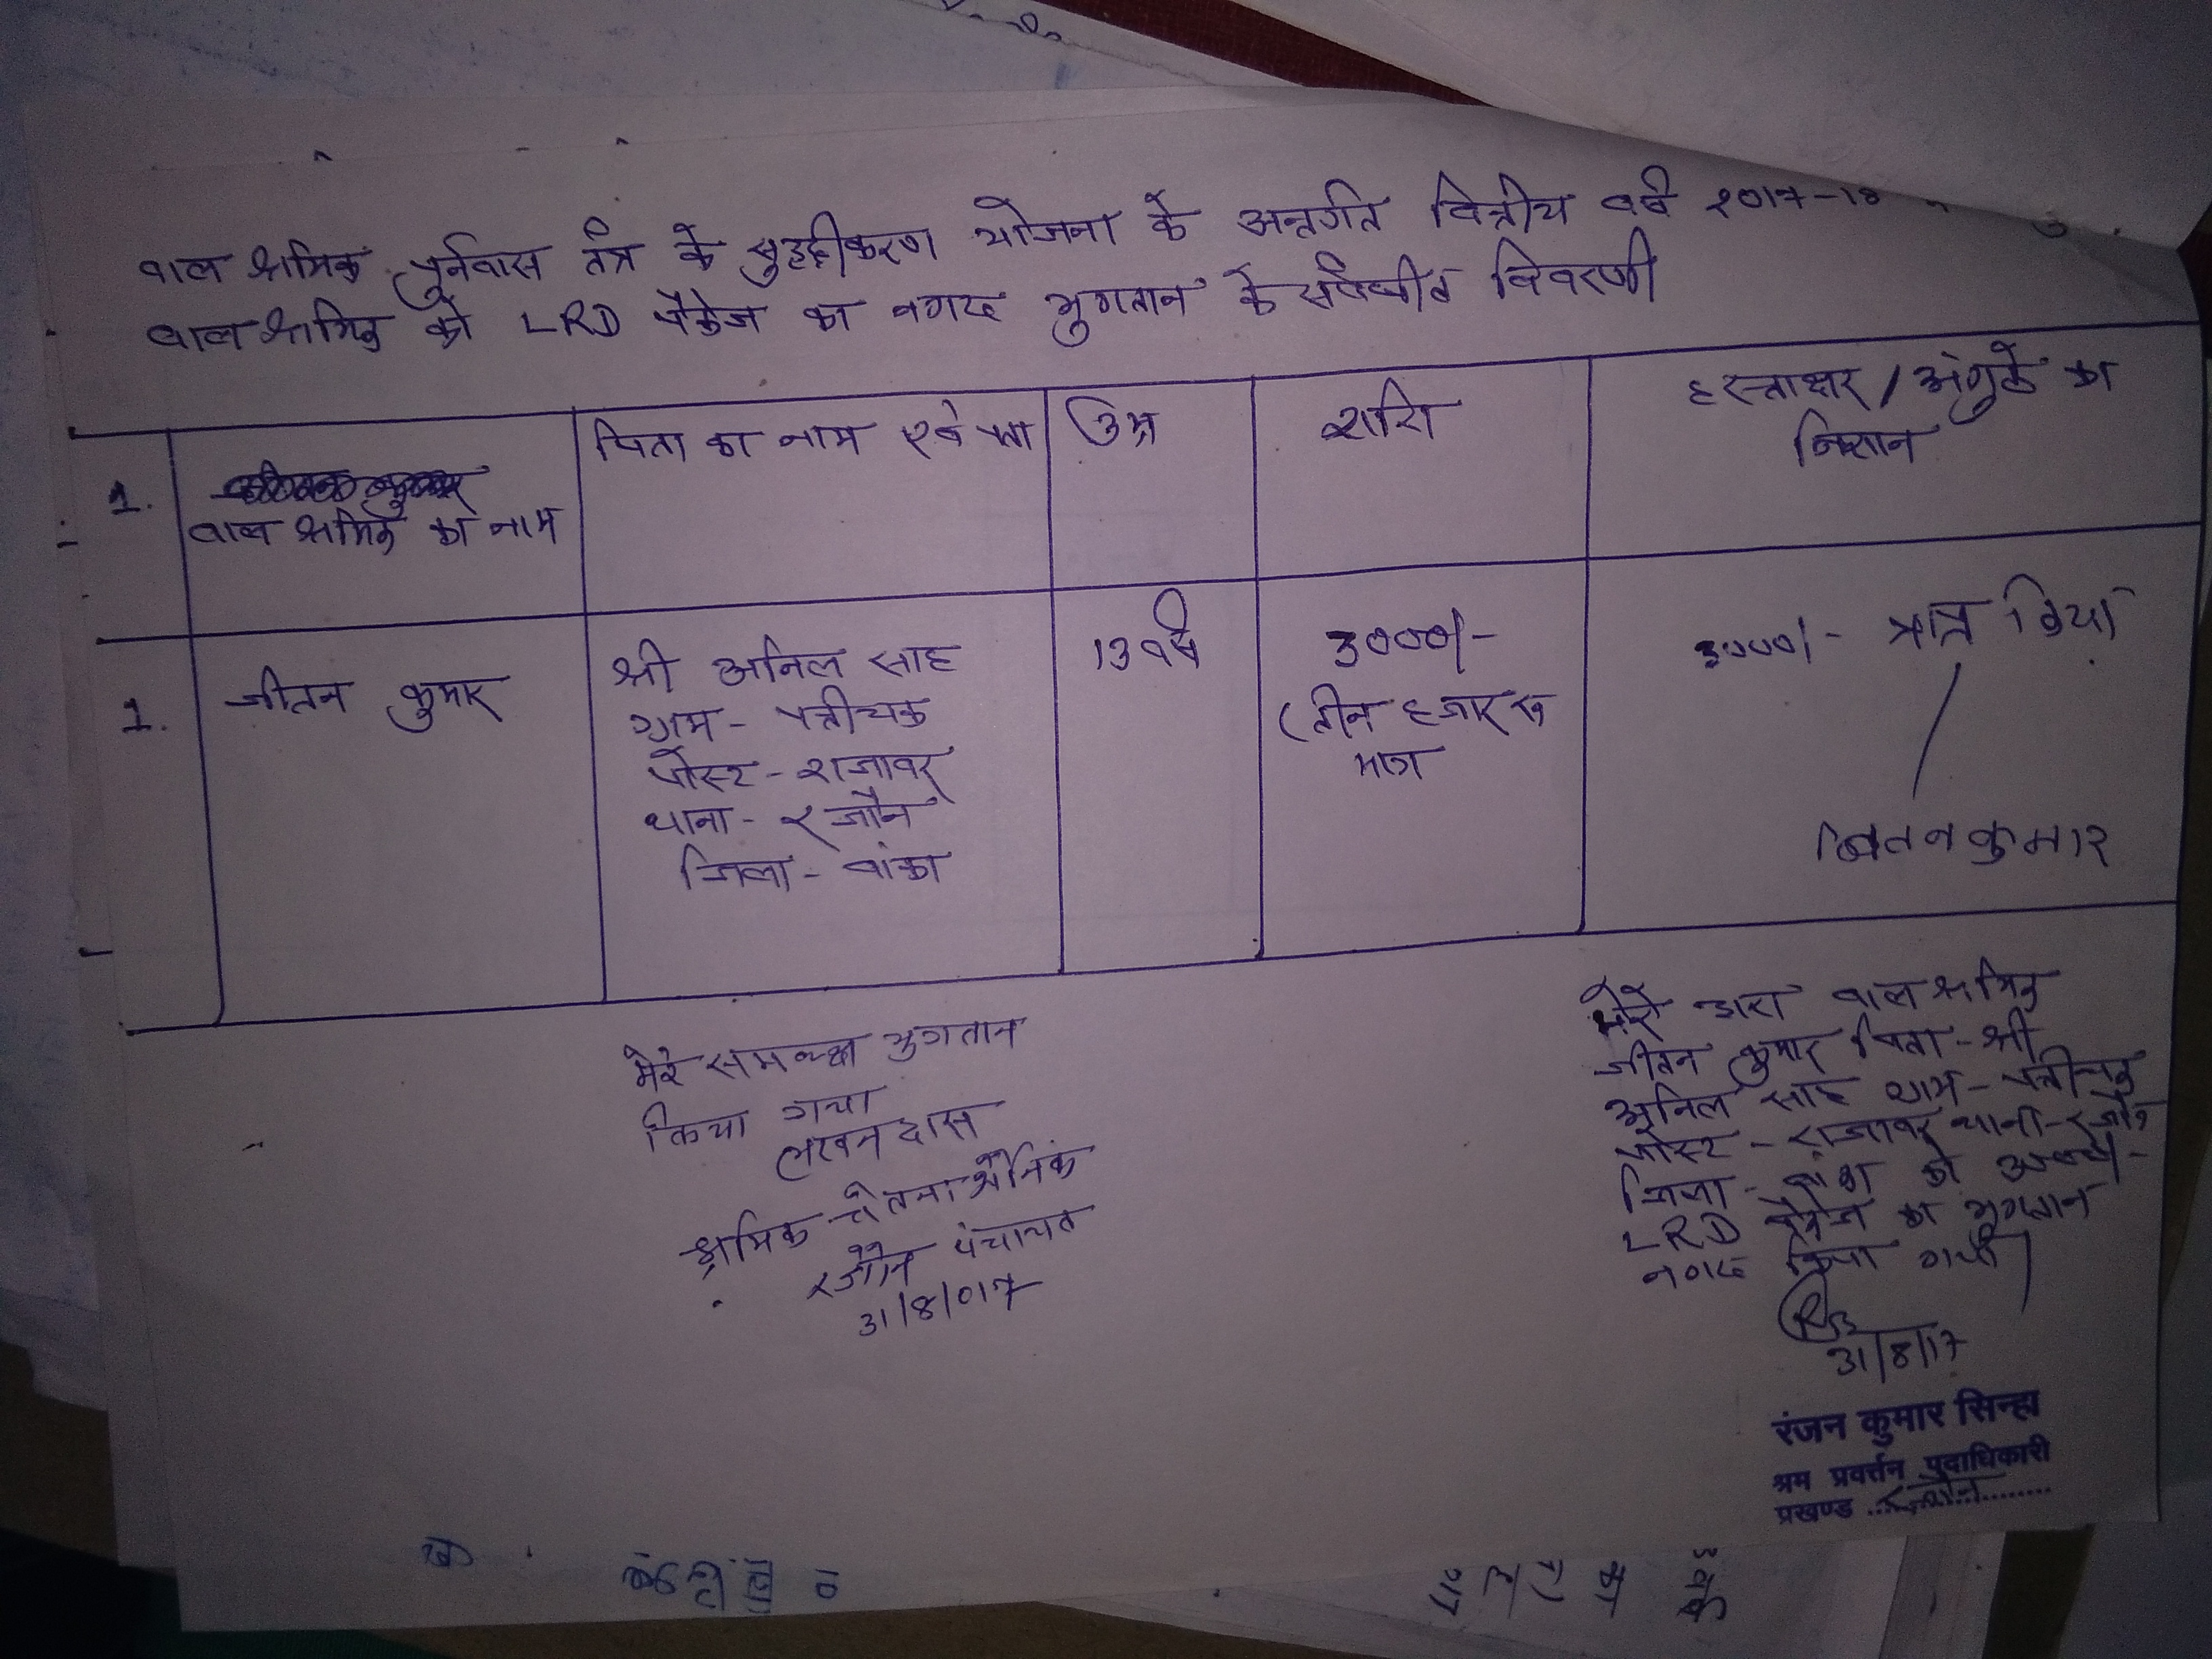 बाल श्रमिक पुर्नवास तंत्र के सुदृढ़ीकरण योजना के अन्तर्गत वित्तीय वर्ष 2017-18
बाल श्रमिक को LRD पैकेज का नगद भुगतान के संबंधीत विवरणी
1.
बाल श्रमिक का नाम
पिता का नाम एवं पता
उम्र
राशि
हस्ताक्षर / अंगुठे का
निशान
1.
जीतन कुमार
श्री अनिल साह
ग्राम - पत्तीचक
पोस्ट - राजावर
थाना - रजौन
जिला - बांका
13 वर्ष
3000/-
(तीन हजार रू
मात्र
3000/- प्राप्त किया
जितन कुमार
मेरे समक्ष भुगतान
किया गया
लखन दास
श्रमिक चेतना सैनिक
रजौन पंचायत
31/8/017
मेरे द्वारा बाल श्रमिक
जीतन कुमार पिता - श्री
अनिल साह ग्राम - पत्तीचक
पोस्ट - राजावर थाना - रजौन
जिला - बांका को 3000/-
LRD पैकेज का भुगतान
नगद किया गया
31/8/17
रंजन कुमार सिन्हा
श्रम प्रवर्त्तन पदाधिकारी
प्रखण्ड ....रजौन........